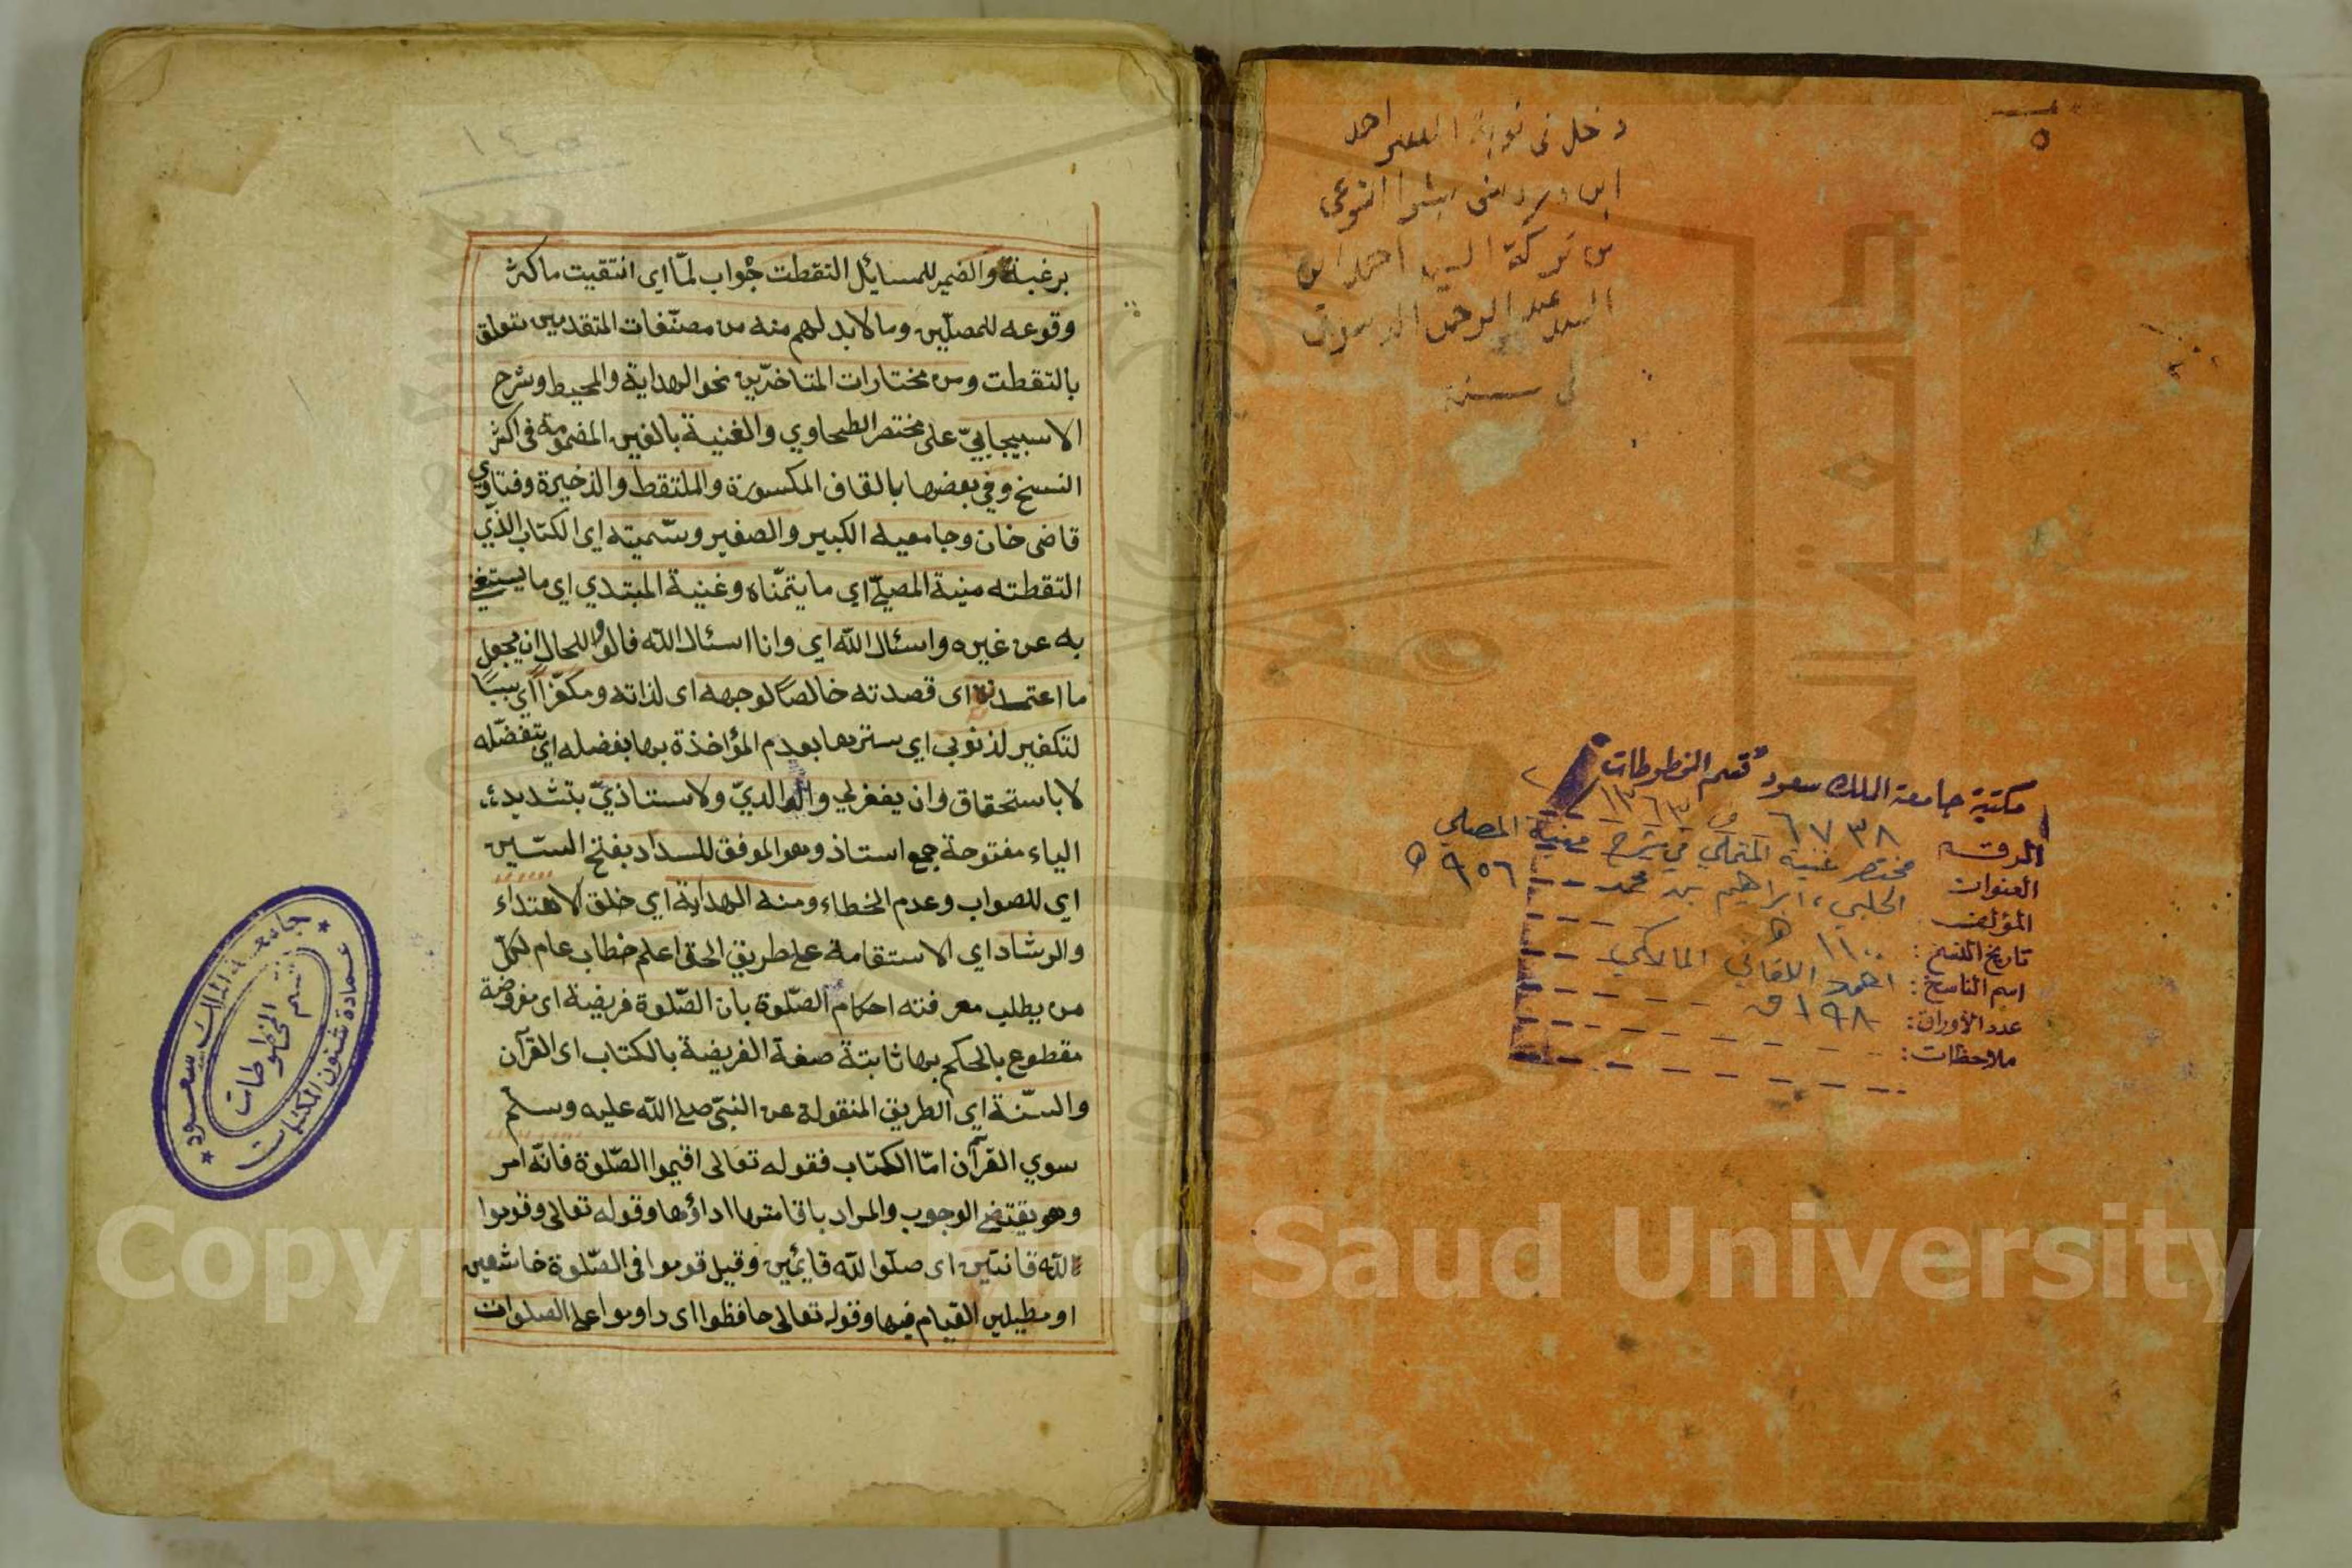 ٥
دخل في نوبة الفقير احمد
ابن بالشرا الشرعي
من تركة السيد احمد ابن
السيد عبد الرحمن
في سنة
مكتبة جامعة الملك سعود قسم المخطوطات
الرقم ٦٧٣٨ ف ١٣٦٣ / ٢
العنوان مختصر غنية المتملي في شرح منية المصلي
المؤلف الحلبي، ابراهيم بن محمد - ٩٥٦ ه
تاريخ النسخ: ١١٠٠ ه
اسم الناسخ: احمد اللقاني المالكي
عدد الأوراق: ١٩٨ ق
ملاحظات:
١٤٥
برغبة والضمير للمسايل التقطت جواب لمّا اى انتقيت ما كثر
وقوعه للمصلّين وما لا بد لهم منه من مصنّفات المتقدمين متعلق
بالتقطت ومن مختارات المتاخرّين نحو الهداية والمحيط وشرح
الاسبيجابيّ على مختصر الطحاوي والغنية بالغين المضمومة فى اكثر
النسخ وفي بعضها بالقاف المكسورة والملتقط والذخيرة وفتاوي
قاضى خان وجامعيه الكبير والصغير وسّميته اى الكتاب الذّي
التقطته منية المصلّي اي ما يتمّناه وغنية المبتدي اي ما يستغني
به عن غيره واسئال الله اي وانا اسئال الله فالواو للحال ان يجعل
ما اعتمدته اى قصدته خالصًا لوجهه اى لذاته ومكفّرًا اي سببًا
لتكفير لذنوبي اي سترها بعدم المؤاخذة بها بفضله اي بتفضّله
لا باستحقاق وان يغفر لي ولوالديّ ولاستاذيّ بتشديد
الياء مفتوحة جمع استاذ وهو الموفق للسداد بفتح السّين
اي للصواب وعدم الخطاء ومنه الهداية اي خلق الاهتداء
والرشاد اي الاستقامة على طريق الحق اعلم خطاب عام لكلّ
من يطلب معرفته احكام الصّلوة بان الصّلوة فريضة اى مفروضة
مقطوع بالحكم بها ثابتة صفة الفريضة بالكتاب اى القرآن
والسّنة اي الطريق المنقولة عن النبّي صلى الله عليه وسلّم
سوي القرآن امّا الكتاب فقوله تعالى اقيموا الصّلوة فانّه امر
وهو يقتضي الوجوب والمراد باقامتها اداؤها وقوله تعالى وقوموا
لله قانتين اى صلّوا لله قايمين وقيل قوموا فى الصّلوة خاشعين
او مطيلين القيام فيها وقوله تعالى حافظوا اى داوموا على الصلوات
جامعة الملك سعود
عمادة شئون المكتبات
قسم المخطوطات
Copyright © King Saud University